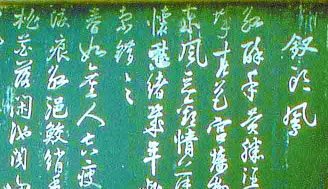 釵頭鳳
紅酥手黄縢酒
春色宮墻
東風惡歡情薄
懷愁緒幾年離
索錯錯
春如舊人空瘦
淚痕紅浥鮫綃
桃花落閑池閣